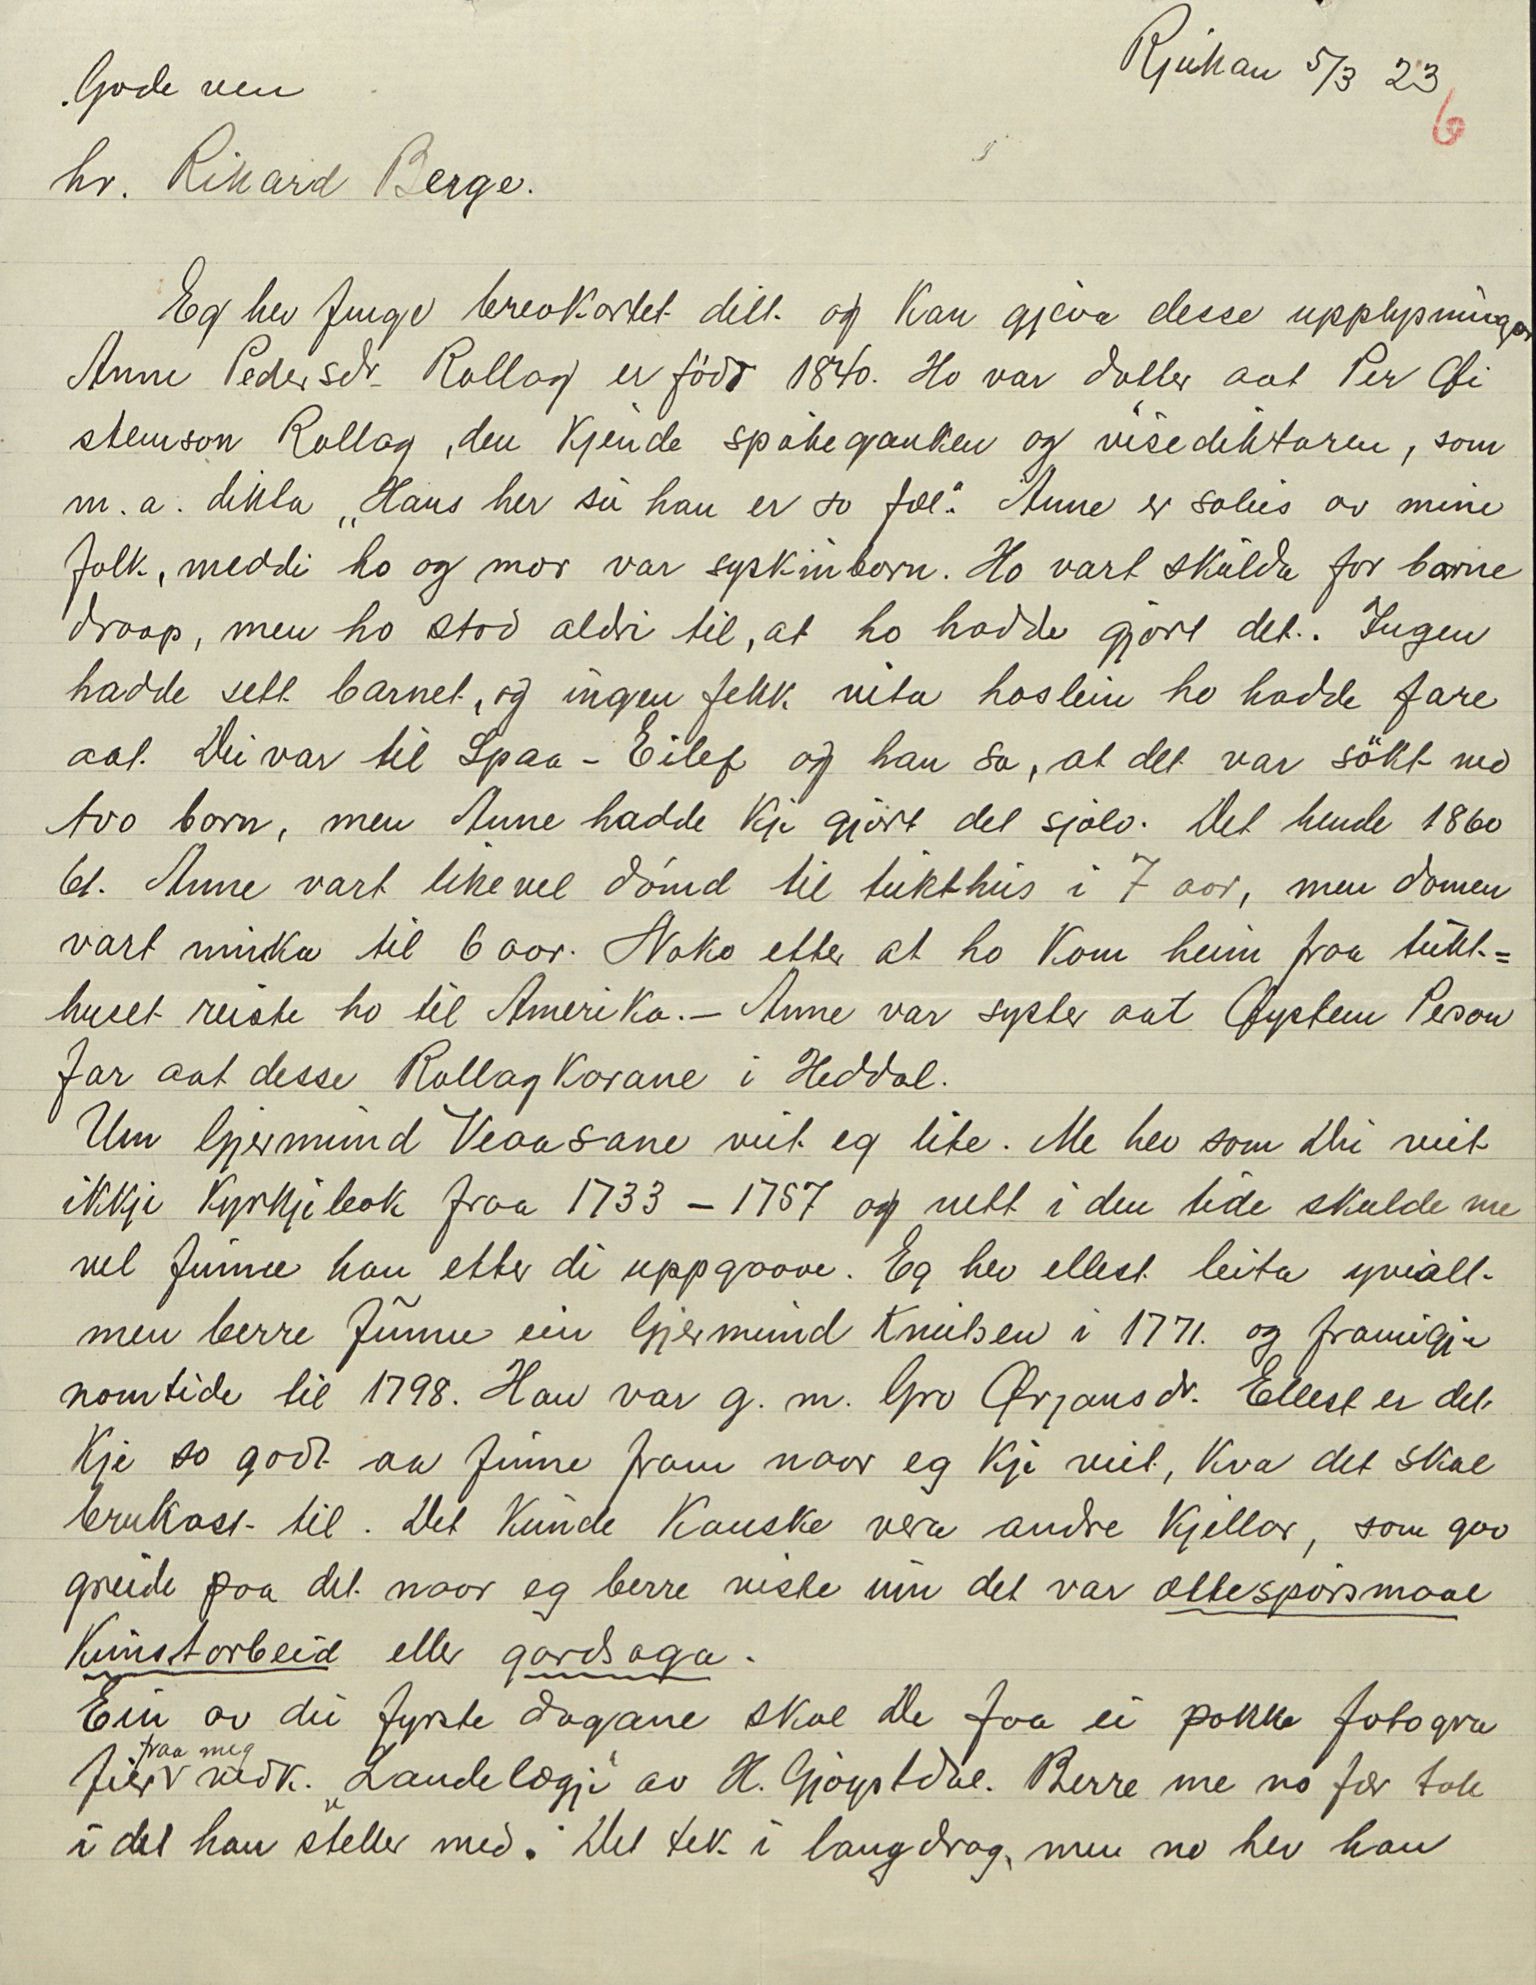 Rjukan 5/3 23
6
Gode ven
hr. Rikard Berge.
Eg hev funge brevkortet ditt og kan gjeva desse upplysningar
Anne Pedersdr. Rollag er född 1840. Ho var dotter aat Per Øi
stemson Rollag, den kjende spökegauken og visediktaren, som
m. a. dikta „Hans her sú han er so fæl". Anne er soleis av mine
folk, meddi ho og mor var syskinborn. Ho vart skulda for barne
draap, men ho stod aldri til, at ho hadde gjort det. Ingen
hadde sett barnet, og ingen fekk vita hoslein ho hadde fare
aat. Dei var til Spaa-Eilef og han sa, at det var sökt ned
tvo born, men Anne hadde kje gjort det sjölv. Det hende 1860
61. Anne vart likevel dömd til tukthus i 7 aar, men domen
vart minka til 6 aar. Noko etter at ho kom heim fraa tukt=
huset reiste ho til Amerika. — Anne var syster aat Øystem Person
far aat desse Rollagkarane i Heddal.
Um Gjermund Veaasane veit eg lite. Me hev som Di veit
ikkje kyrkjebok fraa 1733 – 1757 og nett i den tide skulde me
vel finne han etter di uppgaave. Eg hev ellest leita yviallt
men berre funne ein Gjermund Knutsen i 1771. og framigje
nomtide til 1798. Han var g. m. Gro Ørjansdr. Ellest er det
kje so godt aa finne fram naar eg kje veit, kva det skal
brukast til. Det kunde kanske vera andre kjellor, som gav
greide paa det naar eg berre viste um det var ættespörsmaal
kunstarbeid eller gardsoga.
Ein av dei fyrste dagane skal De faa ei pakke fotogra
fier fraa meg vedk. „Landelægji" av H. Gjöystdal. Berre me no fær tak
i det han steller med. Det tek i langdrag, men no hev han